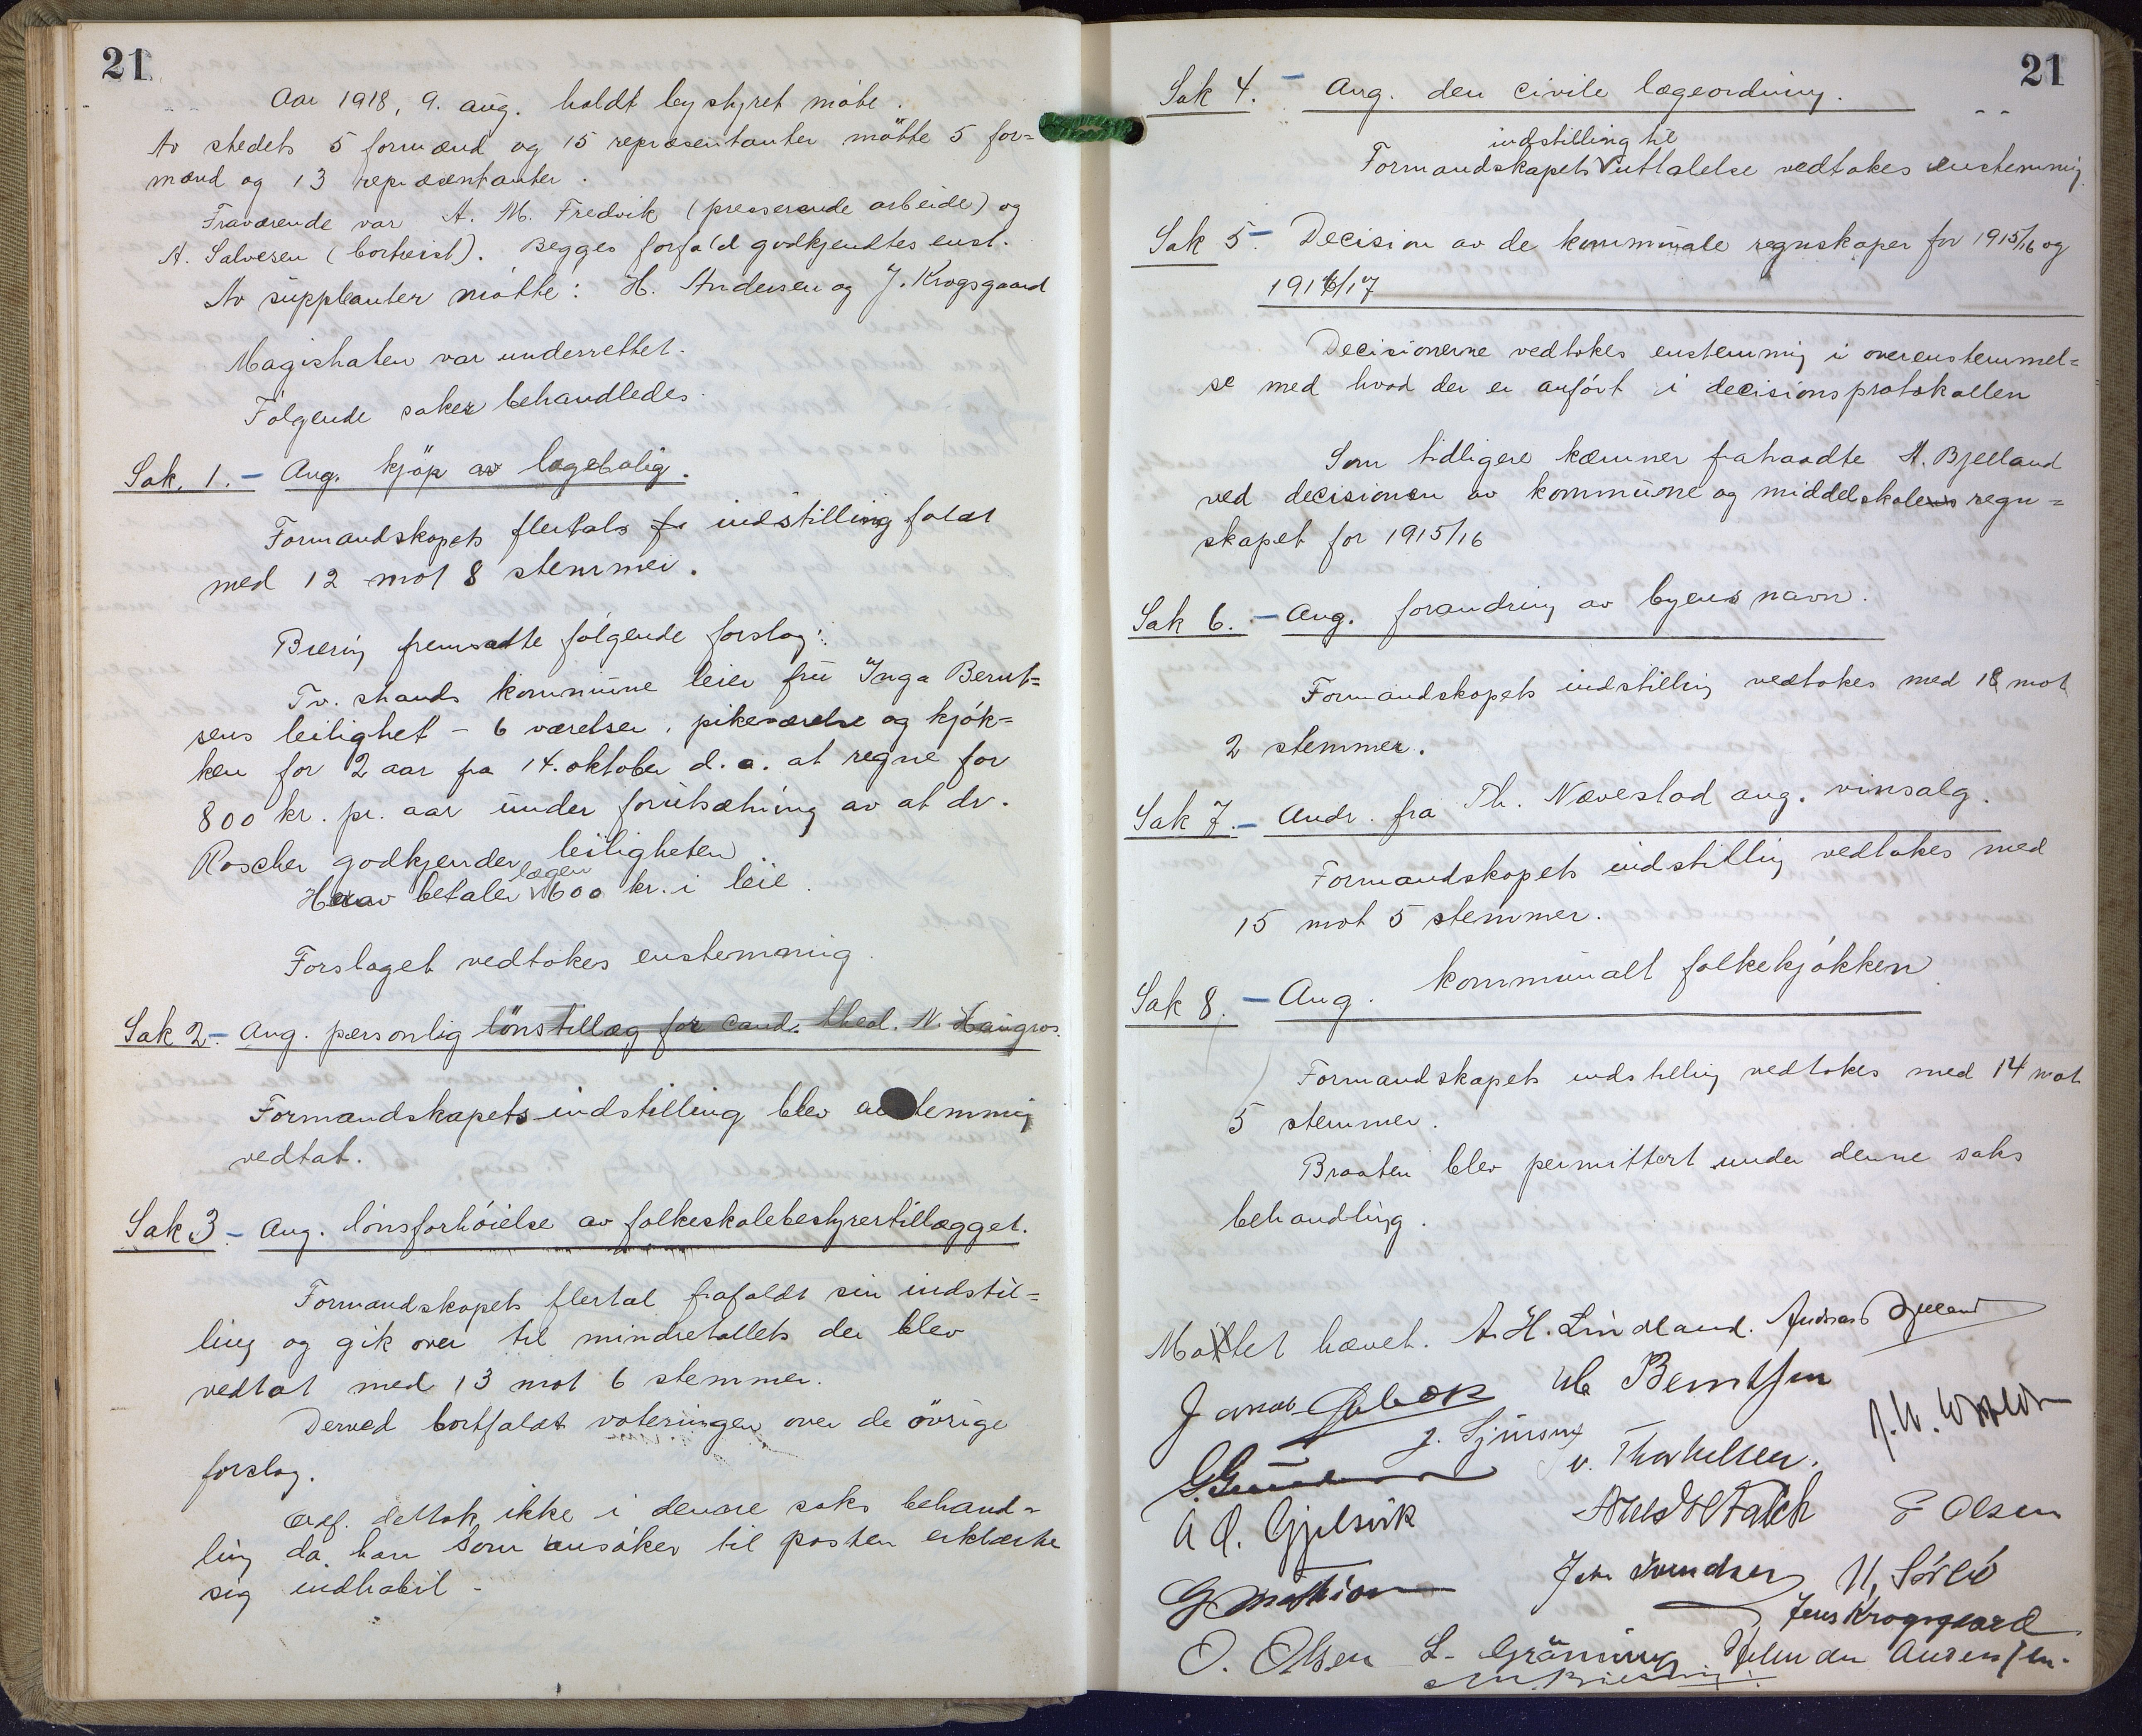 21
Aar 1918, 9. aug. holdt bystyret møte.
Av stedets 5 formænd og 15 repræsentanter møtte 5 for=
mænd og 13 repræsentanter.
Fraværende var A. M. Fredvik (presserende arbeide) og
A. Salvesen (bortreist). Begges forfald godkjendtes enst.
Av suppleanter møtte: H. Andersen og J. Krogsgaard
Magistraten var underrettet.
Følgende saker behandledes
Sak. 1. – Ang. kjøp av lægebolig.
Formandskapets flertals indstilling faldt
med 12 mot 8 stemmer.
Biering fremsatte følgende forslag:
Tv. strands kommune leier fru Inga Bernt=
sens leilighet – 6 værelser, pikeværelse og kjøk=
ken for 2 aar fra 14. oktober d. a. at regne for
800 kr. pr. aar under forutsætning av at dr.
Roscher godkjender leiligheten
Herav betaler lægen 600 kr. i leie.
Forslaget vedtokes enstemmig.
Sak 2 – Ang. personlig lönstillæg for cand. theol. N. Haugros.
Formandskapets indstilling blev temmig
vedtat.
Sak 3 – Ang. lønsforhøielse av folkeskolebestyrertillægget.
Formandskapets flertal frafaldt sin indstil=
ling og gik over til mindretallets der blev
vedtat med 13 mot 6 stemmer.
Derved bortfaldt voteringen over de övrige
forslag.
deltok ikke i denne saks behand=
ling da han som ansøker til posten erklærte
sig indhabil –
21
Sak 4. – Ang. den civile lægeordning.
Formandskapets indstilling til uttalelse vedtokes enstemmig.
Sak 5 – Decision av de kommunale regnskaper for 1915/16 og
1916/17
Decisionerne vedtokes enstemmig i overenstemmel=
se med hvad der er anført i decisionsprotokollen
Som tidligere kæmner fratraadte A. Bjelland
ved decisionen av kommune og middelskolens regn=
skapet for 1915/16
Sak 6. – Ang. forandring av byens navn.
Formandskapets indstilling vedtokes med 18 mot
2 stemmer.
Sak 7. – Andr. fra Th. Nævestad ang. vinsalg.
Formandskapets indstilling vedtokes med
15 mot 5 stemmer.
Sak 8. – Ang. kommunalt folkekjøkken
Formandskapets indstilling vedtokes med 14 mot
5 stemmer.
Braaten blev permittert under denne saks
behandling.
Møtet hævet. A. H. Lindland. Andreas Bjelland
Berntsen
v. Thorkelsen.
A. O. Gjelsvik
Falch
Olsen
G Mathion
Jens Krogsgaard
O. Olsen L. Grönning Andersen.